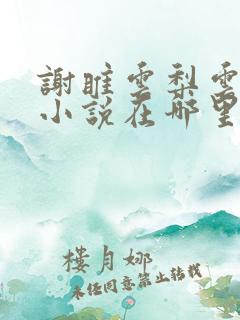 謝雎雲梨雲
小說在哪里
樓月娜
未经同意禁止转载